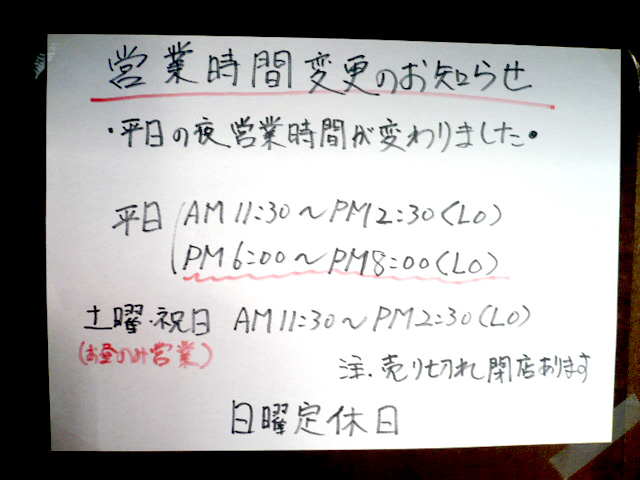 営業時間変更のお知らせ
・平日の夜営業時間が変わりました・
平日 AM11:30~PM2:30(LO)
PM6:00~PM8:00(LO)
土曜・祝日 AM11:30~PM2:30(LO)
(お昼のみ営業)
注.売り切れ閉店あります
日曜定休日